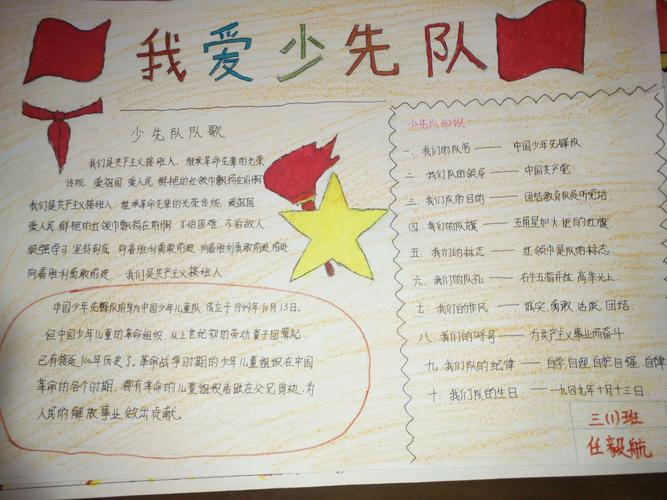 我爱少先队
少先队队歌
我们是共产主义接班人，继承革命先辈的光荣
传统 爱祖国 爱人民 鲜艳的红领巾飘扬在前胸
我们是共产主义接班人，继承革命先辈的光荣传统，爱祖国
爱人民 鲜艳的红领巾飘扬在前胸 不怕困难 不怕敌人
顽强学习 坚持到底 向着胜利勇敢前进 向着胜利勇敢前进
向着胜利勇敢前进 我们是共产主义接班人
中国少年先锋队前身为中国少年儿童队 成立于1949年10月13日。
但中国少年儿童的革命组织，从上世纪初的劳动童子团算起
已有接近100年历史了。革命战争时期的少年儿童组织在中国
革命的各个时期，拥有革命的儿童组织活跃在父兄身边，为
人民的解放事业做出贡献。
少先队知识：
一、我们的队名 —— 中国少年先锋队
二、我们队的领导 —— 中国共产党
三、我们队的目的 —— 团结教育队员听党话
四、我们的队旗 —— 五角星加火炬的红旗
五、我们的标志 —— 红领巾是队的标志
六、我们的队礼 —— 右手五指并拢 高举头上
七、我们的作风 —— 诚实、勇敢、活泼、团结
八、我们的呼号 —— 为共产主义事业而奋斗
九、我们队的纪律 —— 自学 自理 自护 自强 自律
十、我们队的生日 —— 一九四九年十月十三日
三(1)班
任毅航